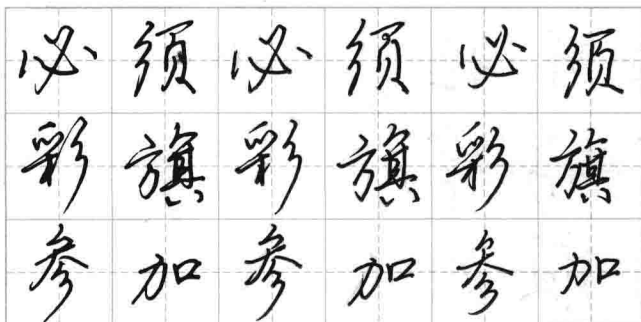 必须必须必须
彩旗彩旗彩旗
参加参加参加